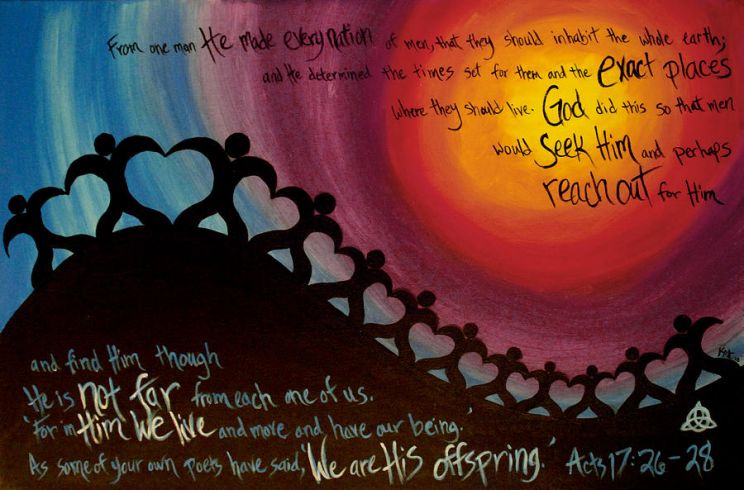 From one man He made every nation of men, that they should inhabit the whole earth;
and He determined the times set for them and the exact places
where they should live. God did this so that men
would seek Him and perhaps
reach out for Him
and find Him though
He is not far from each one of us.
'For in Him we live and move and have our being.'
As some of your own poets have said, 'We are His offspring.' Acts 17:26-28